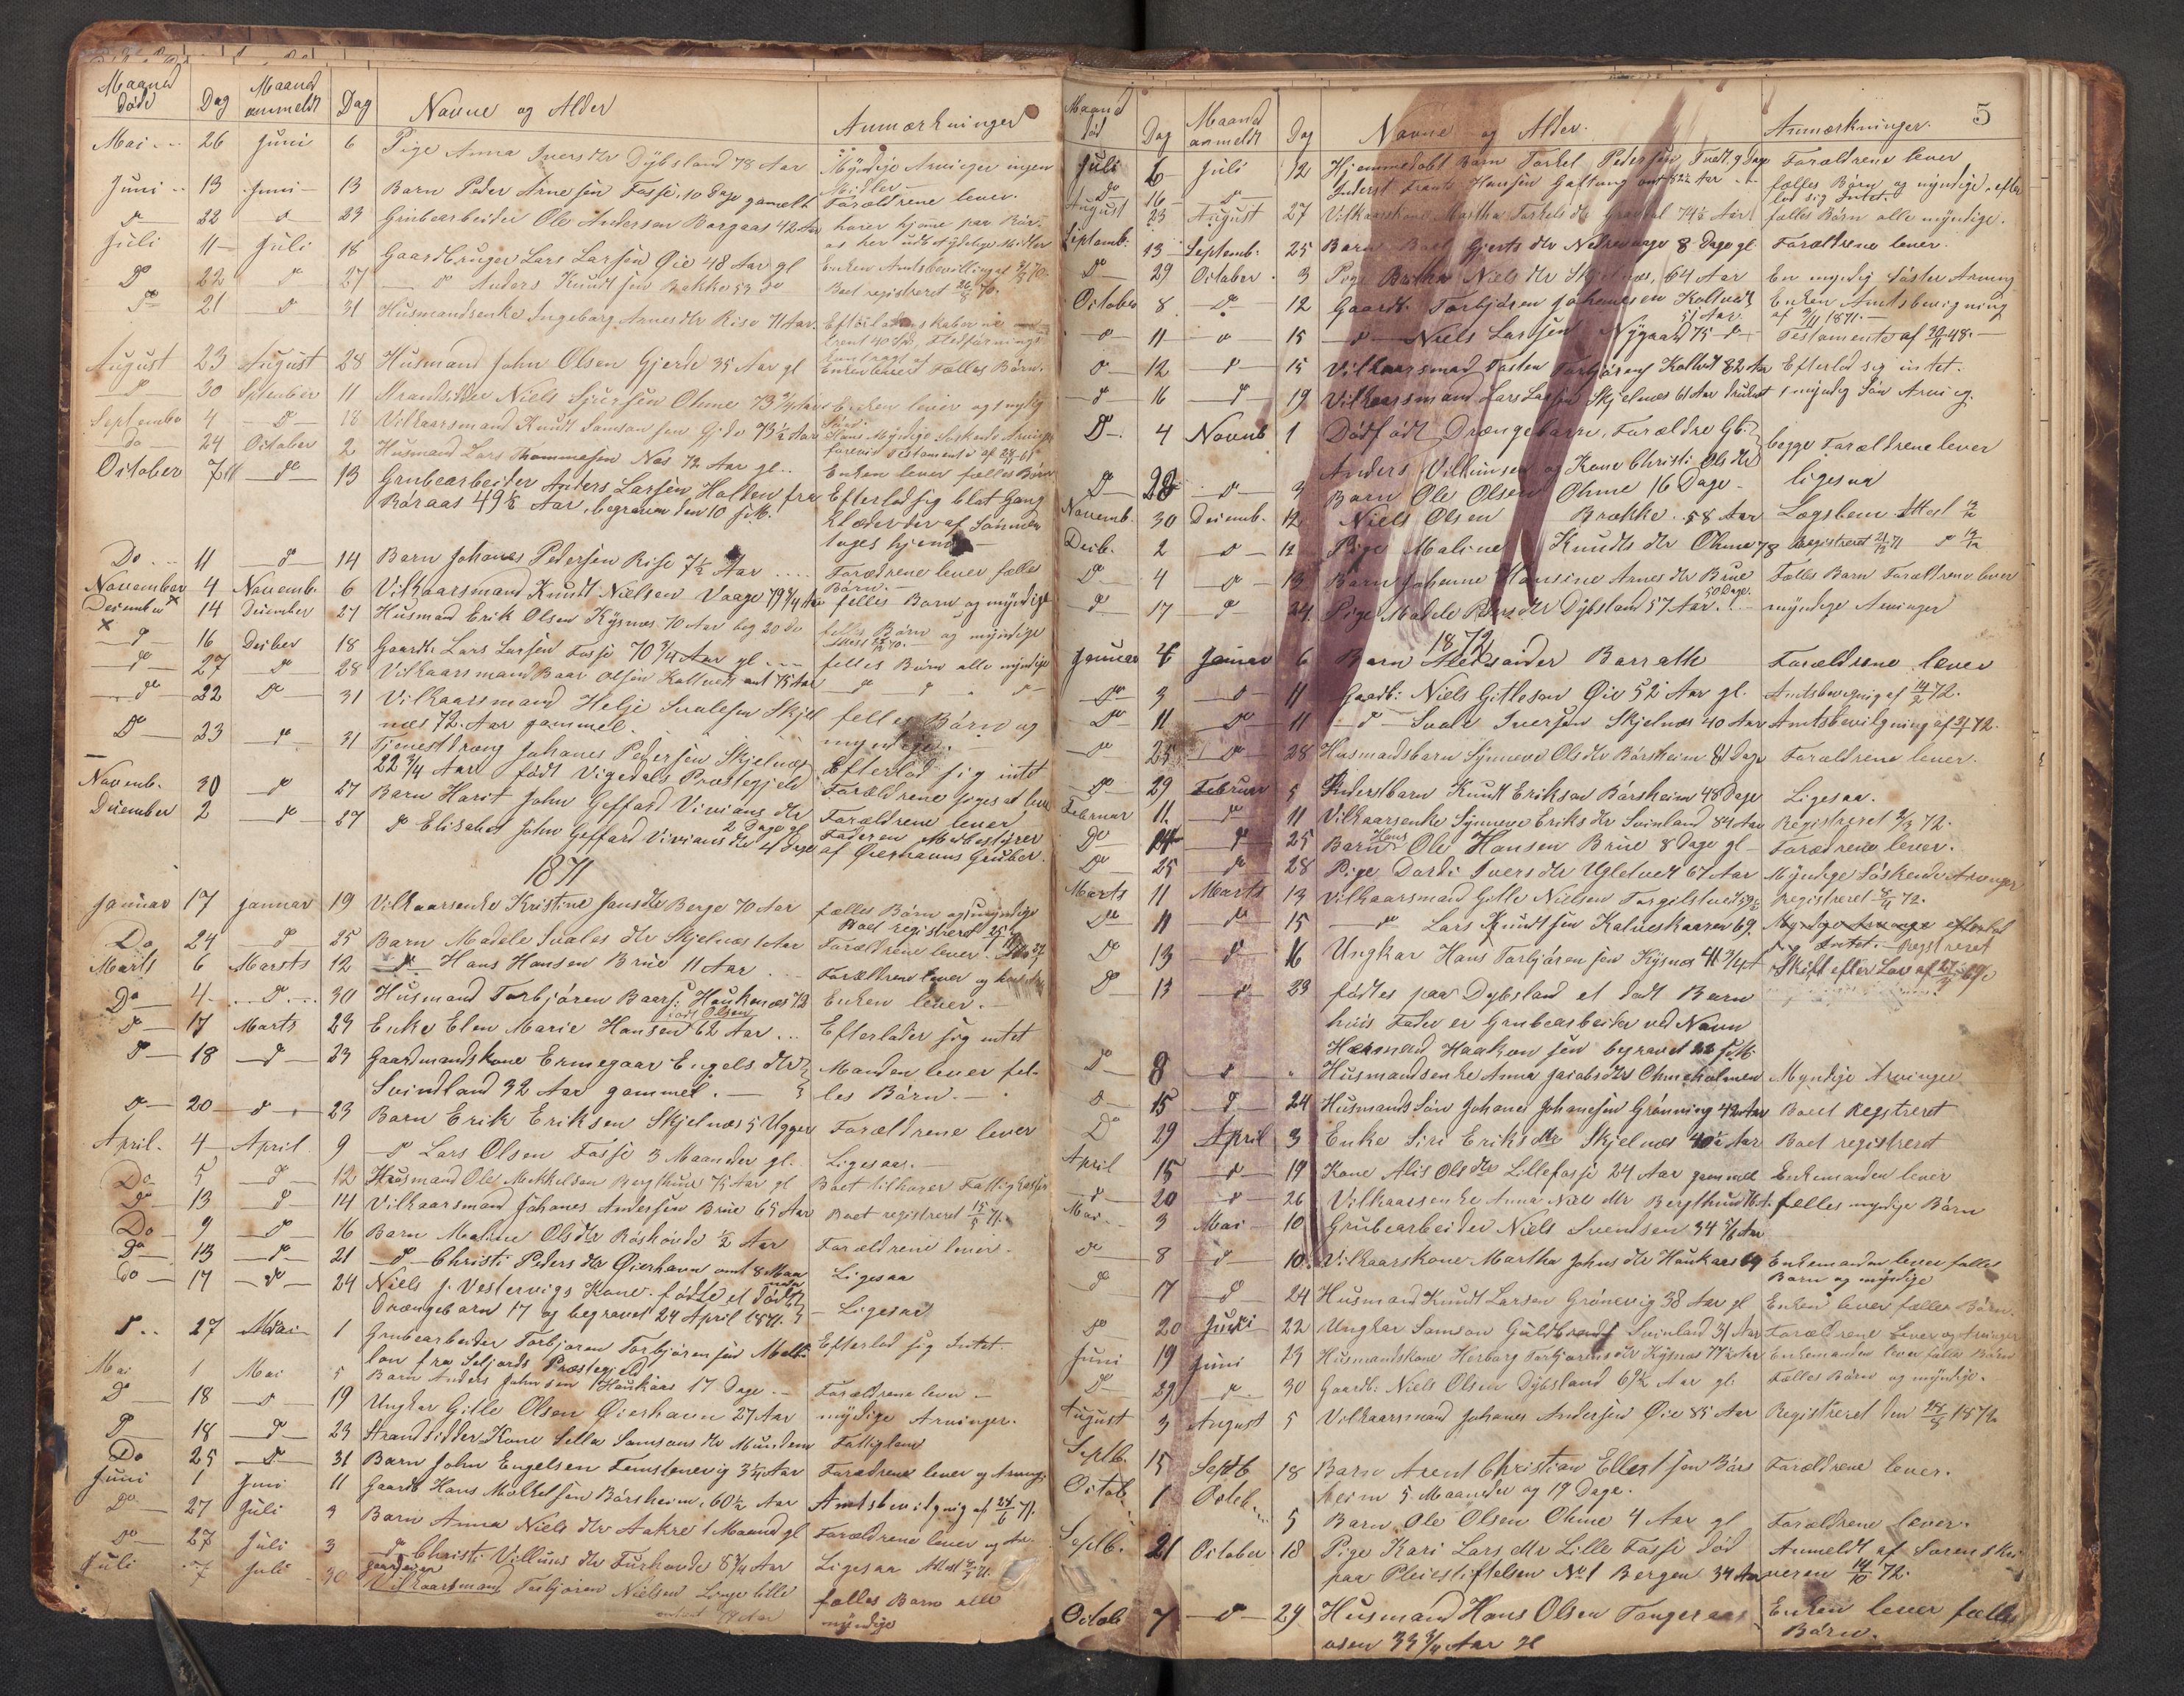 Maaned døde Dag Maaned anmeldt Dag Navne og Alder Anmærkninger
Mai 26 Juni 6 Pige Anna Ivers dtr Dybsland 78 Aar Myndige Arvinger ingen Midler
Juni 13 Juni 13 Barn Peder Arnesen Fosse, 10 Dage gammelt Forældrene lever.
do 22 do 23 Grubearbeider Ole Andersen 42 Aar
Juli 11 Juli 18 Gaardbruger Lars Larsen Øie 48 Aar gl Enken Amtsbevilling af
Do 22 do 27 do Anders Knudtsen Boet registreret
Do 21 do 31 Husmandsenke Ingeborg Arnes dtr Rise 71 Aar.
August 23 August 28 Husmand John Olsen Gjerde 35 Aar gl Enken lever Fælles Børn.
do 30 September 11 Strandsidder Niels Sjursen Ohme 73 3/4 Aar Enken lever og 1 myndig
September 4 do 18 Vilkaarsmand Knudt Samsonsen 73 1/2 Aar
do 24 October 2 Husmand Lars Thommesen Næs 72 Aar gl.
October 7 do 13 Grubearbeider Anders Larsen Halden fra Enken lever fælles Børn
Røraas 49 1/8 Aar, begraven den 10 s.M. Efterlod sig blot Gang
Klæder der af Sønnen
tages hjem
Do 11 do 14 Barn Johanes Pedersen Rise 7 1/2 Aar Forældrene lever fælles Børn.
November 4 Novemb. 6 Vilkaarsmand Knudt Nielsen Vaage 79 3/4 Aar fælles Børn og myndige
December 14 December 21 Husmand Erik Olsen Kysnæs 70 Aar beg 20 do fælles Børn og myndige
do 16 Decbr 18 Gaardb. Lars Larsen Fosse 70 3/4 Aar gl
do 27 do 28 Vilkaarsmand Baar Olsen Koltvedt ant 75 Aar fælles Børn alle myndige
do 22 do 31 Vilkaarsmand Helje Svalesen Skjel fælles Børn og
næs 72 Aar gammel. myndige.
Do 23 do 31 Tjenestdreng Johanes Pedersen Skjelnæs
22 3/4 Aar født Vigedals Præstegjeld Efterlod sig intet
Novemb. 30 do 27 Barn Harit John Geffard Vivians dtr Forældrene
2 Dage gl
December 2 do 27 do Elisabet John Geffard Vivians dtr 4 Dage Forældrene lever
Faderen Medbestyrer
af Øierhavns Gruber.
1871
Januar 17 Januar 19 Vilkaarsenke Kristine Jans dtr Berge 70 Aar fælles Børn og umyndige
Boet registreret
Do 24 do 25 Barn Madele Svales dtr Skjelnæs 1 Aar Forældrene lever.
Marts 6 Marts 12 do Hans Hansen Brue 11 Aar Forældrene lever
Do 4 do 30 Husmand Torbjøren Baars. Haukenæs 72 Enken lever.
født Olsen
do 17 Marts 23 Enke Elen Marie Hansen 62 Aar Efterlader sig intet
do 18 do 23 Gaardmandskone Ermegaar Engels dtr Manden lever fæl-
Svindland 32 Aar gammel. les Børn.
do 20 do 23 Barn Erik Eriksen Skjelnæs 5 Uger Forældrene lever
April. 4 April 9 do Lars Olsen Fosse 3 Maaneder gl. Ligesaa.
Do 5 do 12 Husmand Ole Mikkelsen Bergthun 75 Aar gl Boet tilhører Fattigkassen
do 13 do 14 Vilkaarsmand Johanes Andersen Brue 65 Aar Boet registreret 15/5 71.
Do 9 do 16 Barn Maline Ols dtr Røshovde 1/2 Aar Forældrene lever.
Do 13 do 21 do Christi Peders dtr Øierhavn ant 8 Maaneder Ligesaa
do 17 do 24 Niels J. Vestervigs Kone fødte et dødt
Drængebarn 17 og begravet 24 April 1871. Ligesaa
D 27 Mai 1 Grubearbeider Torbjøren Torbjørensen Efterlod sig Intet.
fra Seljords Præstegjeld
Mai 1 Mai 5 Barn Anders Johnsen Haukaas 17 Dage Forældrene lever
Do 18 do 19 Ungkar Gitle Olsen Øierhavn 27 Aar myndige Arvinger.
D 18 do 23 Strandsidder Kone Silla Samsons dtr Mundem Fattiglem
Do 25 do 31 Barn John Engelsen Femstenevig 3 1/4 Aar Forældrene lever og Arvinge
Juni 1 Juni 11 Gaardb Hans Mikkelsen Børsheim, 60 1/2 Aar Amtsbevilgning af 24/6 71.
do 27 Juli 3 Barn Anna Niels dtr Aakre 1 Maaned gl Forældrene lever og Ar.
do 27 Juli 3 do Christi Villums dtr Furhovde 8 3/4 Aar Ligesaa
Juli 7 Juli 30 Vilkaarsmand Torbjøren Nielsen Linge lille fælles Børn alle
myndige
5
Maaned død Dag Maaned anmeldt Dag Navne og Alder. Anmærkninger.
Juli 6 Juli 12 Hjemmedøbt Barn Torkel Pedersen, Tvedt, 9 Dage Forældrene lever
Do 16 do Inderst Frants Hansen ant 82 1/2 Aar fælles Børn og myndige, efter
lod sig Intet.
August 23 August 27 Vilkaarskone Martha Torkels dtr 74 1/2 Aar fælles Børn alle myndige.
Septemb: 13 Septemb. 25 Barn Gjerts dtr Nedrevaage 8 Dage gl Forældrene lever
Do 29 October 3 Pige Niels dtr Skjelnæs, 64 Aar En myndig Søster Arving
October 8 do 12 Gaardb. Torbjøren Johanesen Koltvedt Enken Amtsbevilgning
51 Aar. af 3/11 1871.
do 11 do 15 do Niels Larsen Nygaard 75 do Testamente af
do 12 do 15 Vilkaarsmand Tosten Torbjørens Koltvedt 82 Aar Efterlod sig intet.
do 16 do 19 Vilkaarsmand Lars Larsen Skjelnæs 61 Aar 1 myndig Søn Arving
D 4 Novmb 1 Dødfødt Drængebarn, Forældre Gb. begge Forældrene lever
Anders Villumsen og Kone Christi Ols dtr
D 28 do 3 Barn Ole Olsen Ohme 16 Dage ligesaa
Novemb. 30 Decemb. 12 Niels Olsen Brække. 58 Aar Lægslem
Decb. 2 do 12 Pige Maline Knudts dtr Ohme 78 Registreret
Do 4 do 13 Barn Johanne Hansine Arnes dtr Brue 50 Dage. Fælles Børn Forældrene lever
do 17 do 24 Pige Madele Peders dtr Dybsland 57 Aar myndige Arvinger
1872
Januar 4 Januar 6 Barn Alexander Barrath Forældrene lever
do 3 do 11 Gaardb: Niels Gitleson Øie 52 Aar gl. Amtsbevilgnig af 14/2 72.
Do 11 Do 11 do Svale Iversen Skjelnæs 40 Aar Amtsbevilgning af 72.
do 25 do 28 Husmandsbarn Synneve Ols dtr Børsheim 8 Dage Forældrene lever.
do 29 Februar 5 Inderstbarn Knudt Erikson Børsheim 48 Dage Ligesaa.
Februar 11. do 11 Vilkaarsenke Synneve Eriks dtr Svinland 84 Aar Registreret 2/3 72.
Do 14 do 25 Barn Hans Ole Hansen Brue 8 Dage gl Forældrene lever.
do 25 do 28 Pige Dordi Ivers dtr Ugletvedt 67 Aar Myndige Søskende Arvinger
Marts 11 Marts 13 Vilkaarsmand Gitle Nielsen Torgilstvedt Registreret 8/4 72.
Do 11 do 15 do Lars Knudtsen Kalveskaaren 69 Myndige Arvinge efterlod
sig Intet. Registreret
D 13 do 16 Ungkar Hans Torbjørensen Kysnæs 41 3/4 Skift efter Lov af
D 13 do 23 fødtes paa Dybsland et dødt Barn
hvis Fader er Grubearbeider ved Navn
Hermand Haakonsen begravet 22 s.M.
D 8 do " Husmandsenke Anna Jacobs dtr Ohmeholmen Myndige Arvinger
D 15 do 24 Husmands Søn Johanes Johanesen Grønning 42 Aar Boet Registreret
D 29 April 3 Enke Siri Eriks dtr Skjelnæs 40 1/2 Aar Boet registreret
April 15 do 19 Kone Alis Ols dtr Lillefosse 24 Aar gammel Enkemanden lever
do 20 do 26 Vilkaarsenke Anna Nils dtr Bergthun 76 A. fælles myndige Børn
Mai 3 Mai 10 Grubearbeider Niels Svendsen 34 5/6 Aar
do 8 do 10 Vilkaarskone Martha Johns dtr Haukaas 69 Enkemanden lever fælles
Børn og myndige
do 17 do 24 Husmand Knudt Larsen Grønevig 38 Aar gl Enken lever fælles Børn.
do 20 Juni 22 Ungkar Samson Guldbrands Svinland 31 Aar Forældrene Lever og Arvinger
Juni 19 Juni 23 Husmandskone Herborg Torbjørens dtr Kysnæs 77 1/2 Aar Enkemanden lever fælles Børn
D 29 do 30 Gaardb: Niels Olsen Dybsland 69 1/2 Aar gl. Fælles Børn og myndige.
August 3 August 5 Vilkaarsmand Johanes Andersen Øie 85 Aar Registreret den 1872
Septb. 15 Septb 18 Barn Arent Christian Ellertsen Børs Forældrene lever.
heim 5 Maaneder og 19 Dage.
Octob 1 Octob. 5 Barn Ole Olsen Ohme 4 Aar gl Forældrene lever.
Septb. 21 October 18 Pige Kari Lars dtr Lille Fosse død Anmeldt af Sorenskri
paa Pleiestiftelsen No 1 Bergen 34 Aar veren 14/10 72.
Octob 7 do 29 Husmand Hans Olsen Tangeraas Enken lever fælles
osen 33 3/4 Aar gl Børn.